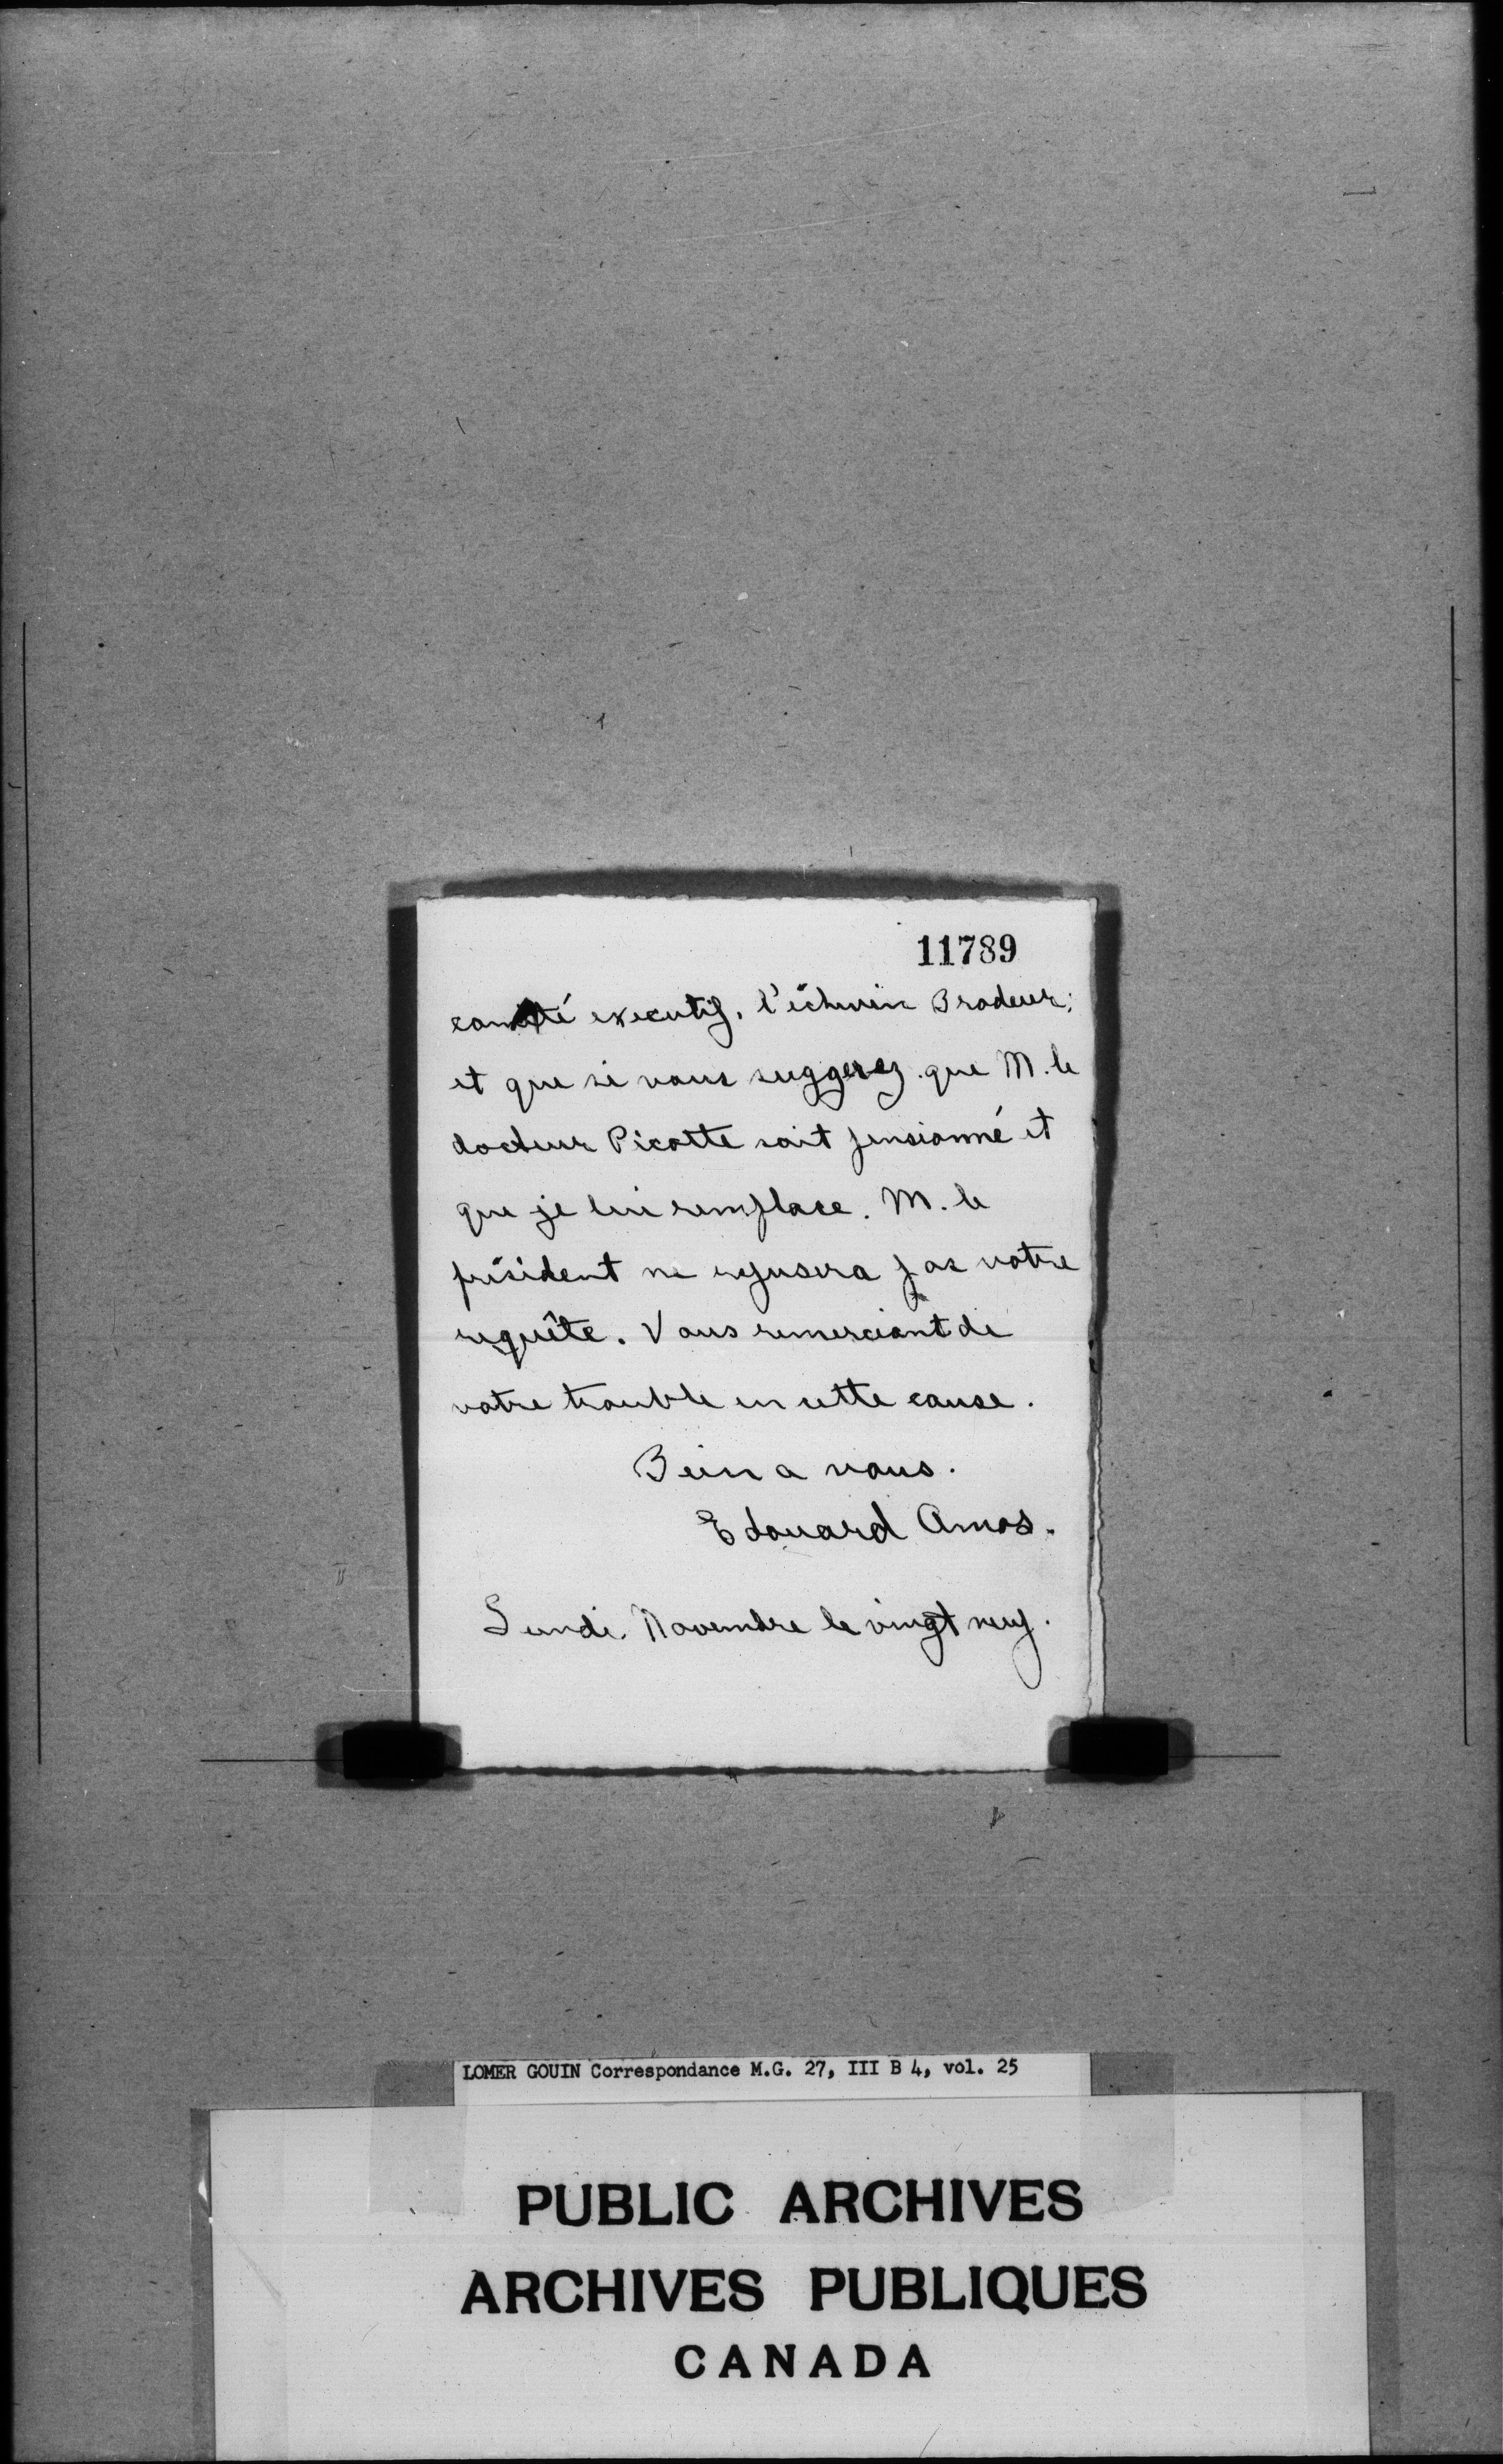 11789
comité executif, l'échevin Brodeur;
et que si vous suggerez que M. le
docteur Picotte soit pensionné et
que je lui remplace. M. le
président ne refusera pas votre
requête. Vous remerciant de
votre trouble en cette cause.
Bein a vous.
Edouard Amos.
Lundi. Novembre le vingt neuf.
LOMER GOUIN Correspondance M.G. 27, III B 4, vol. 25
PUBLIC ARCHIVES
ARCHIVES PUBLIQUES
CANADA